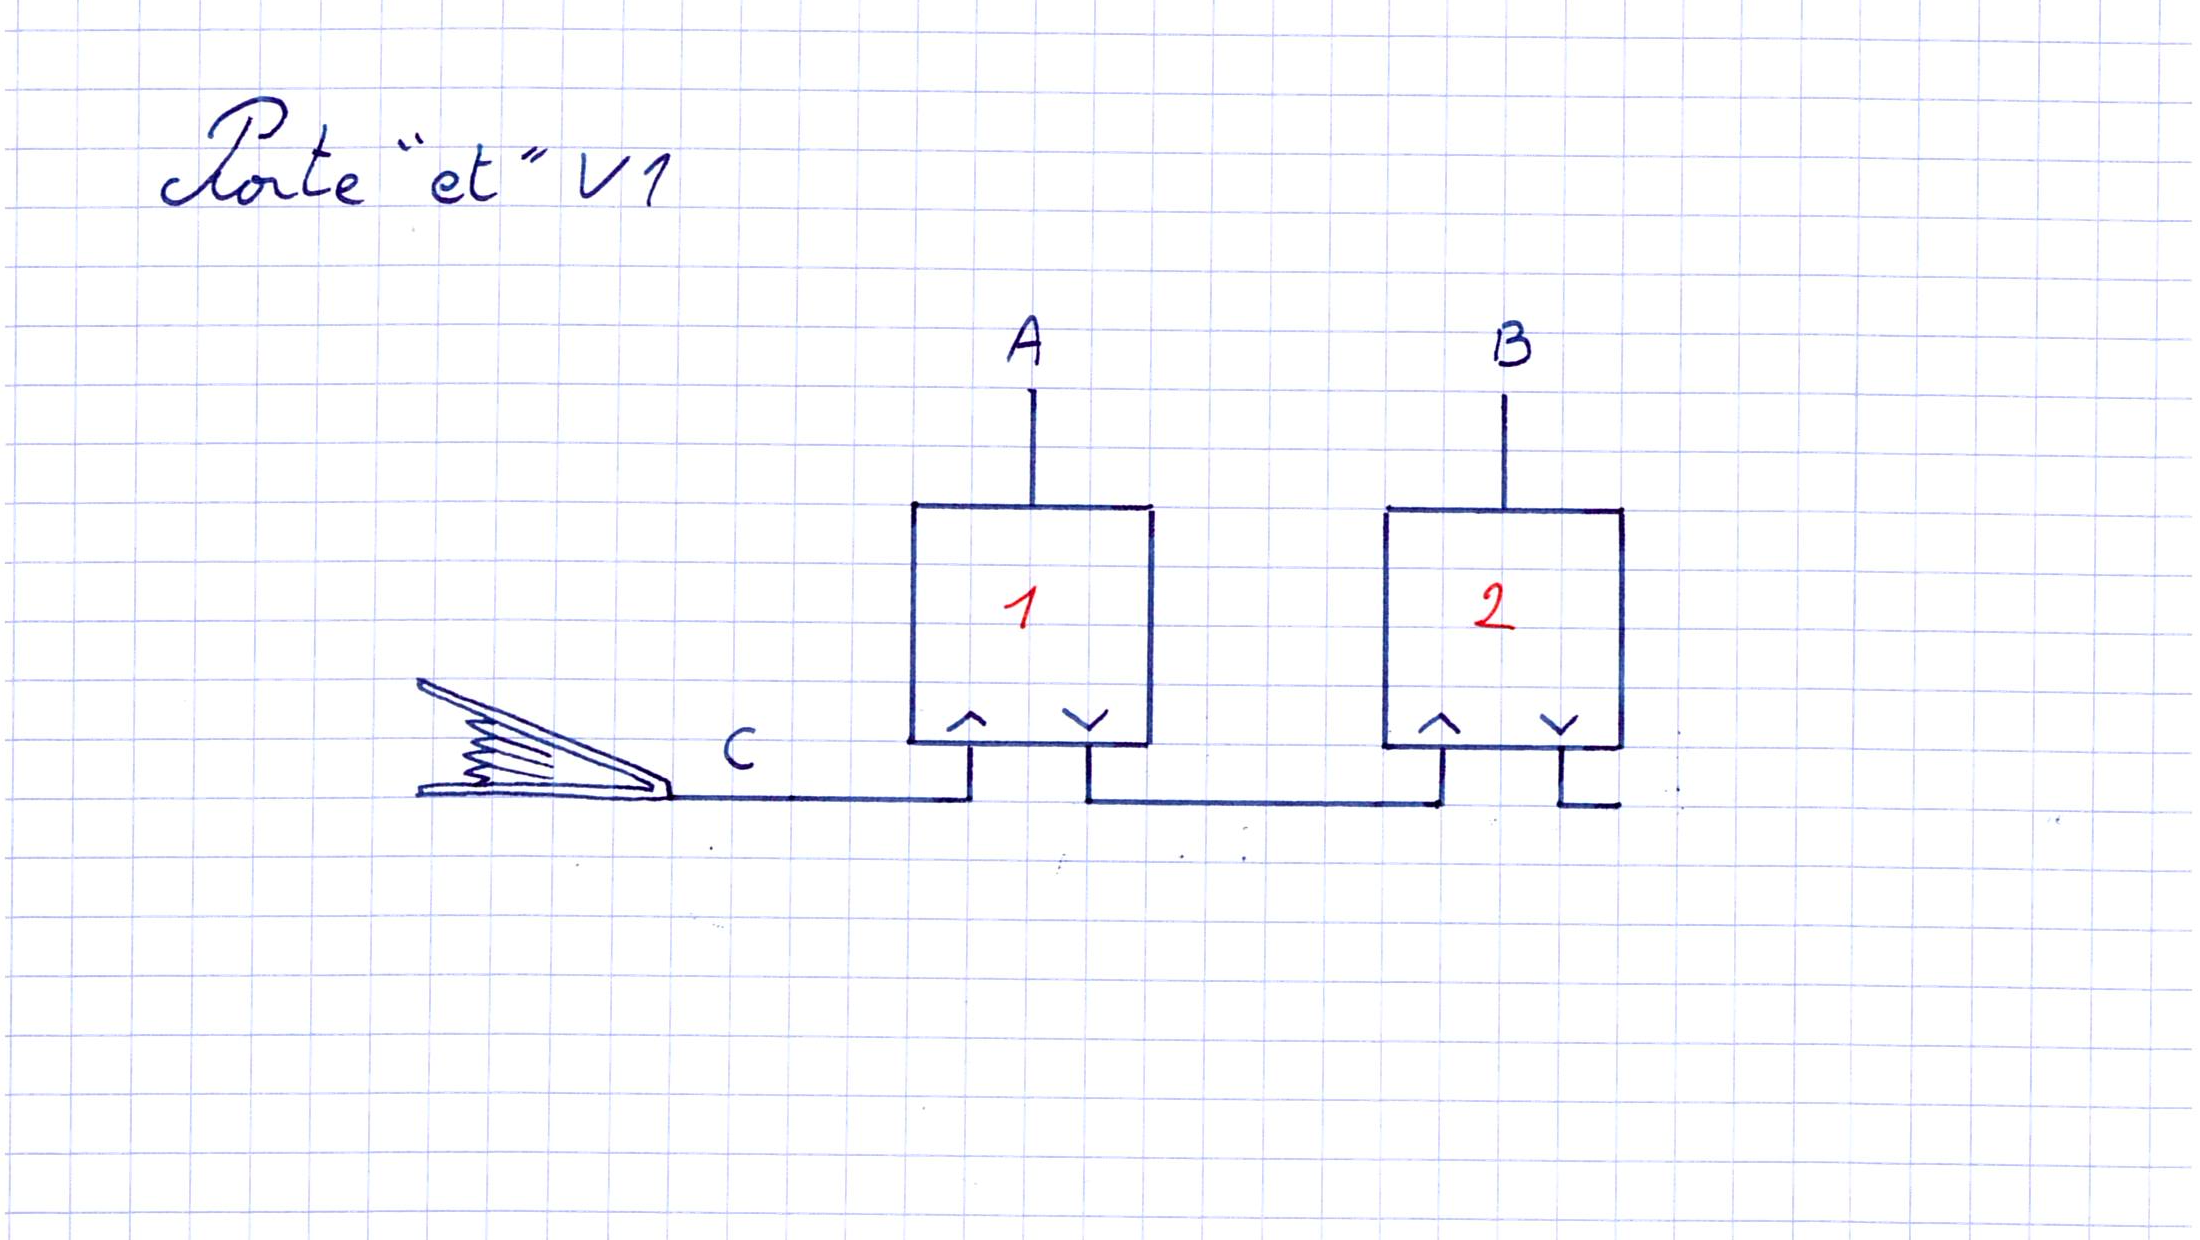 Porte "et" V1
A B
1 2
C